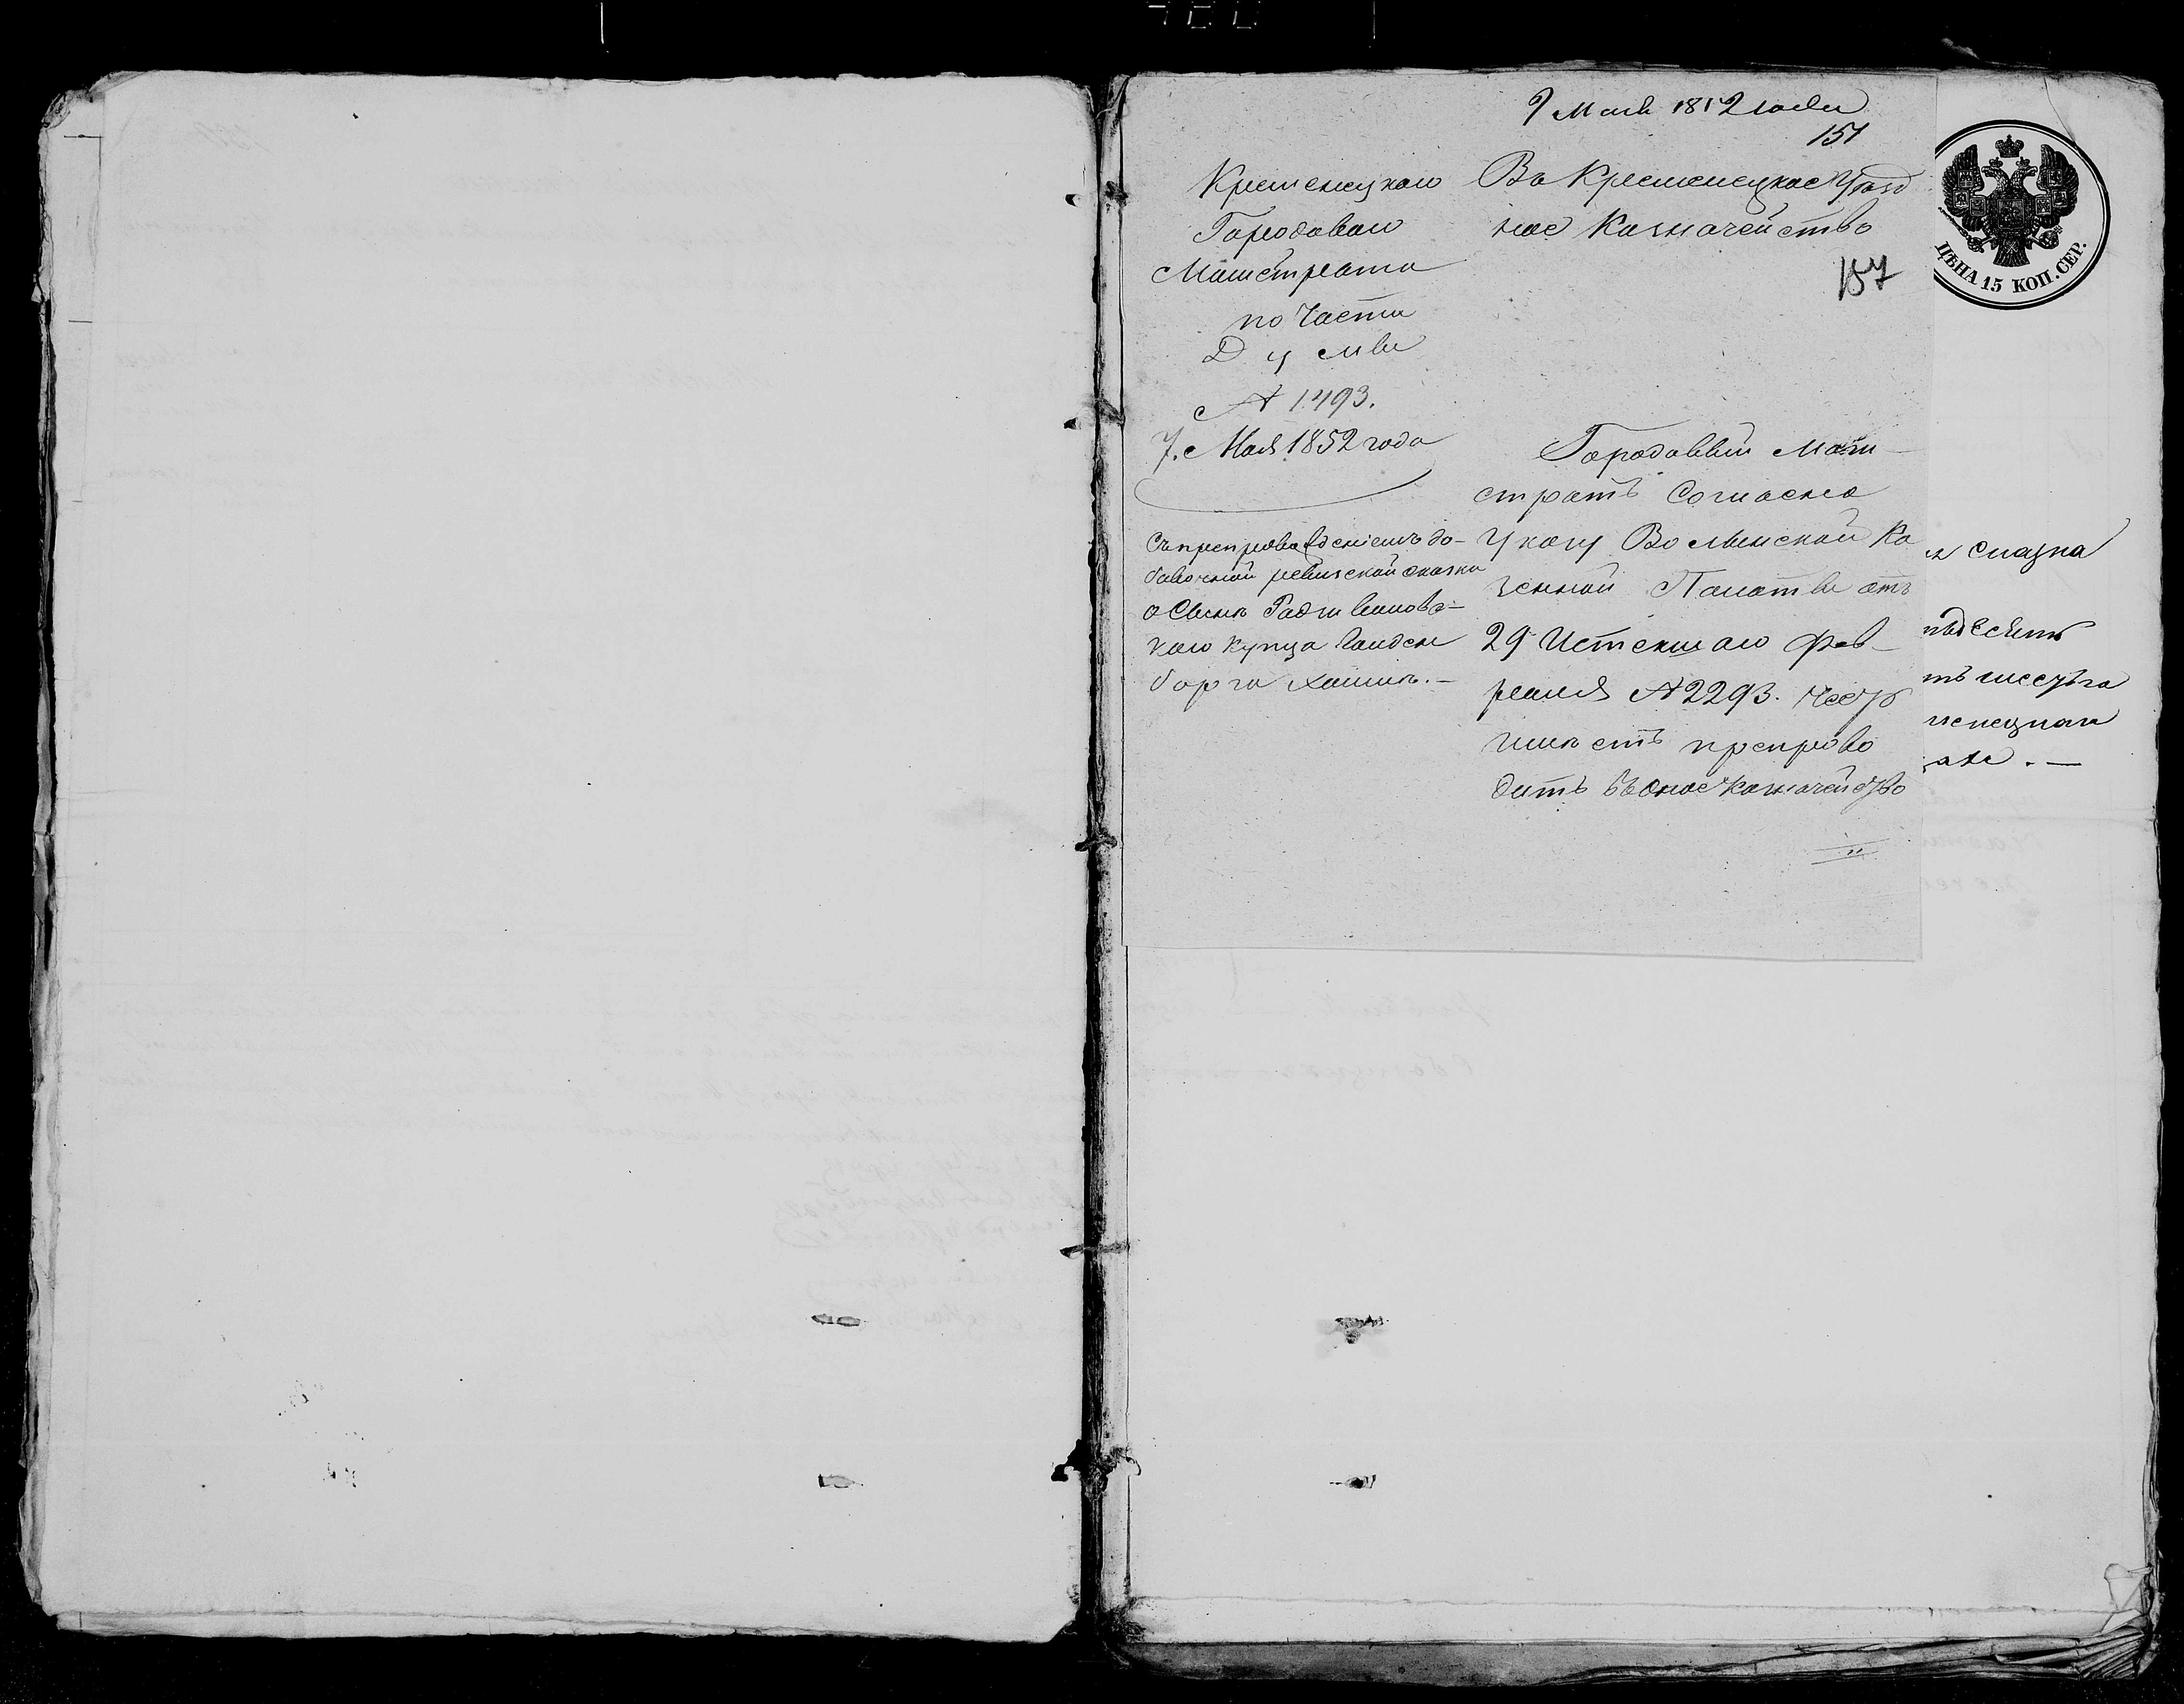 9 Мая 1852 года
151
Кременецкаго
Городоваго
Магистрата
по Части
Думы
№ 1493.
7. Мая 1852 года
Съ препровожденіемъ до-
бавочной ревизской сказки
о Сынѣ Радзивиловс-
каго купца
Хаимѣ. —
Въ Кременецкое Уѣзд
ное Казначейство
157
Городовый Маги-
стратъ Согласно
Указу Волынской Ка
зенной Палаты отъ
29 Истекшаго Фев-
раля № 2293. Честь
имѣетъ препрово
дить въ оное Казначейство
ЦѢНА 15 КОП. СЕР.
сказка